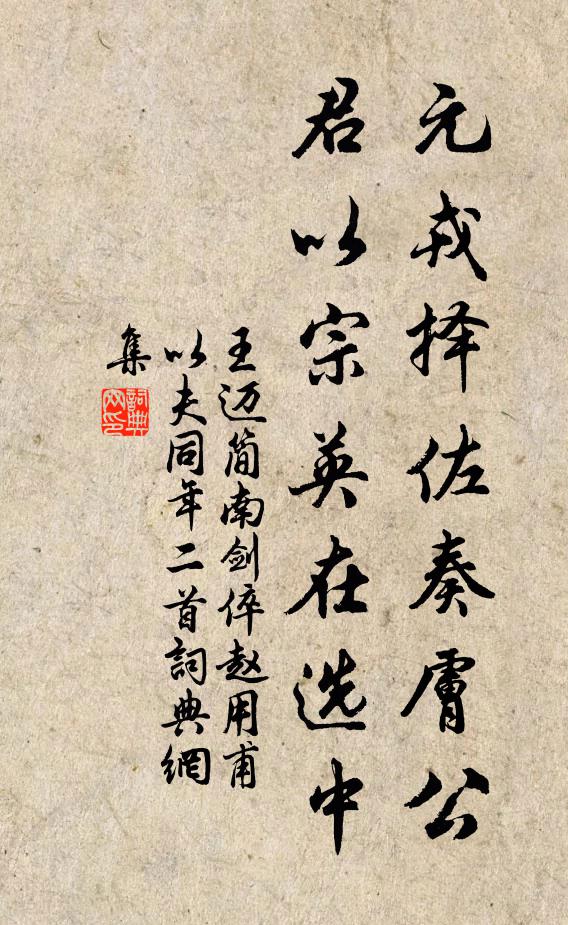 元戎择佐奏膚公
君以宗英在选中
王迈简南剑倅赵用甫
以夫同年二首詞典網
集
詞典網印